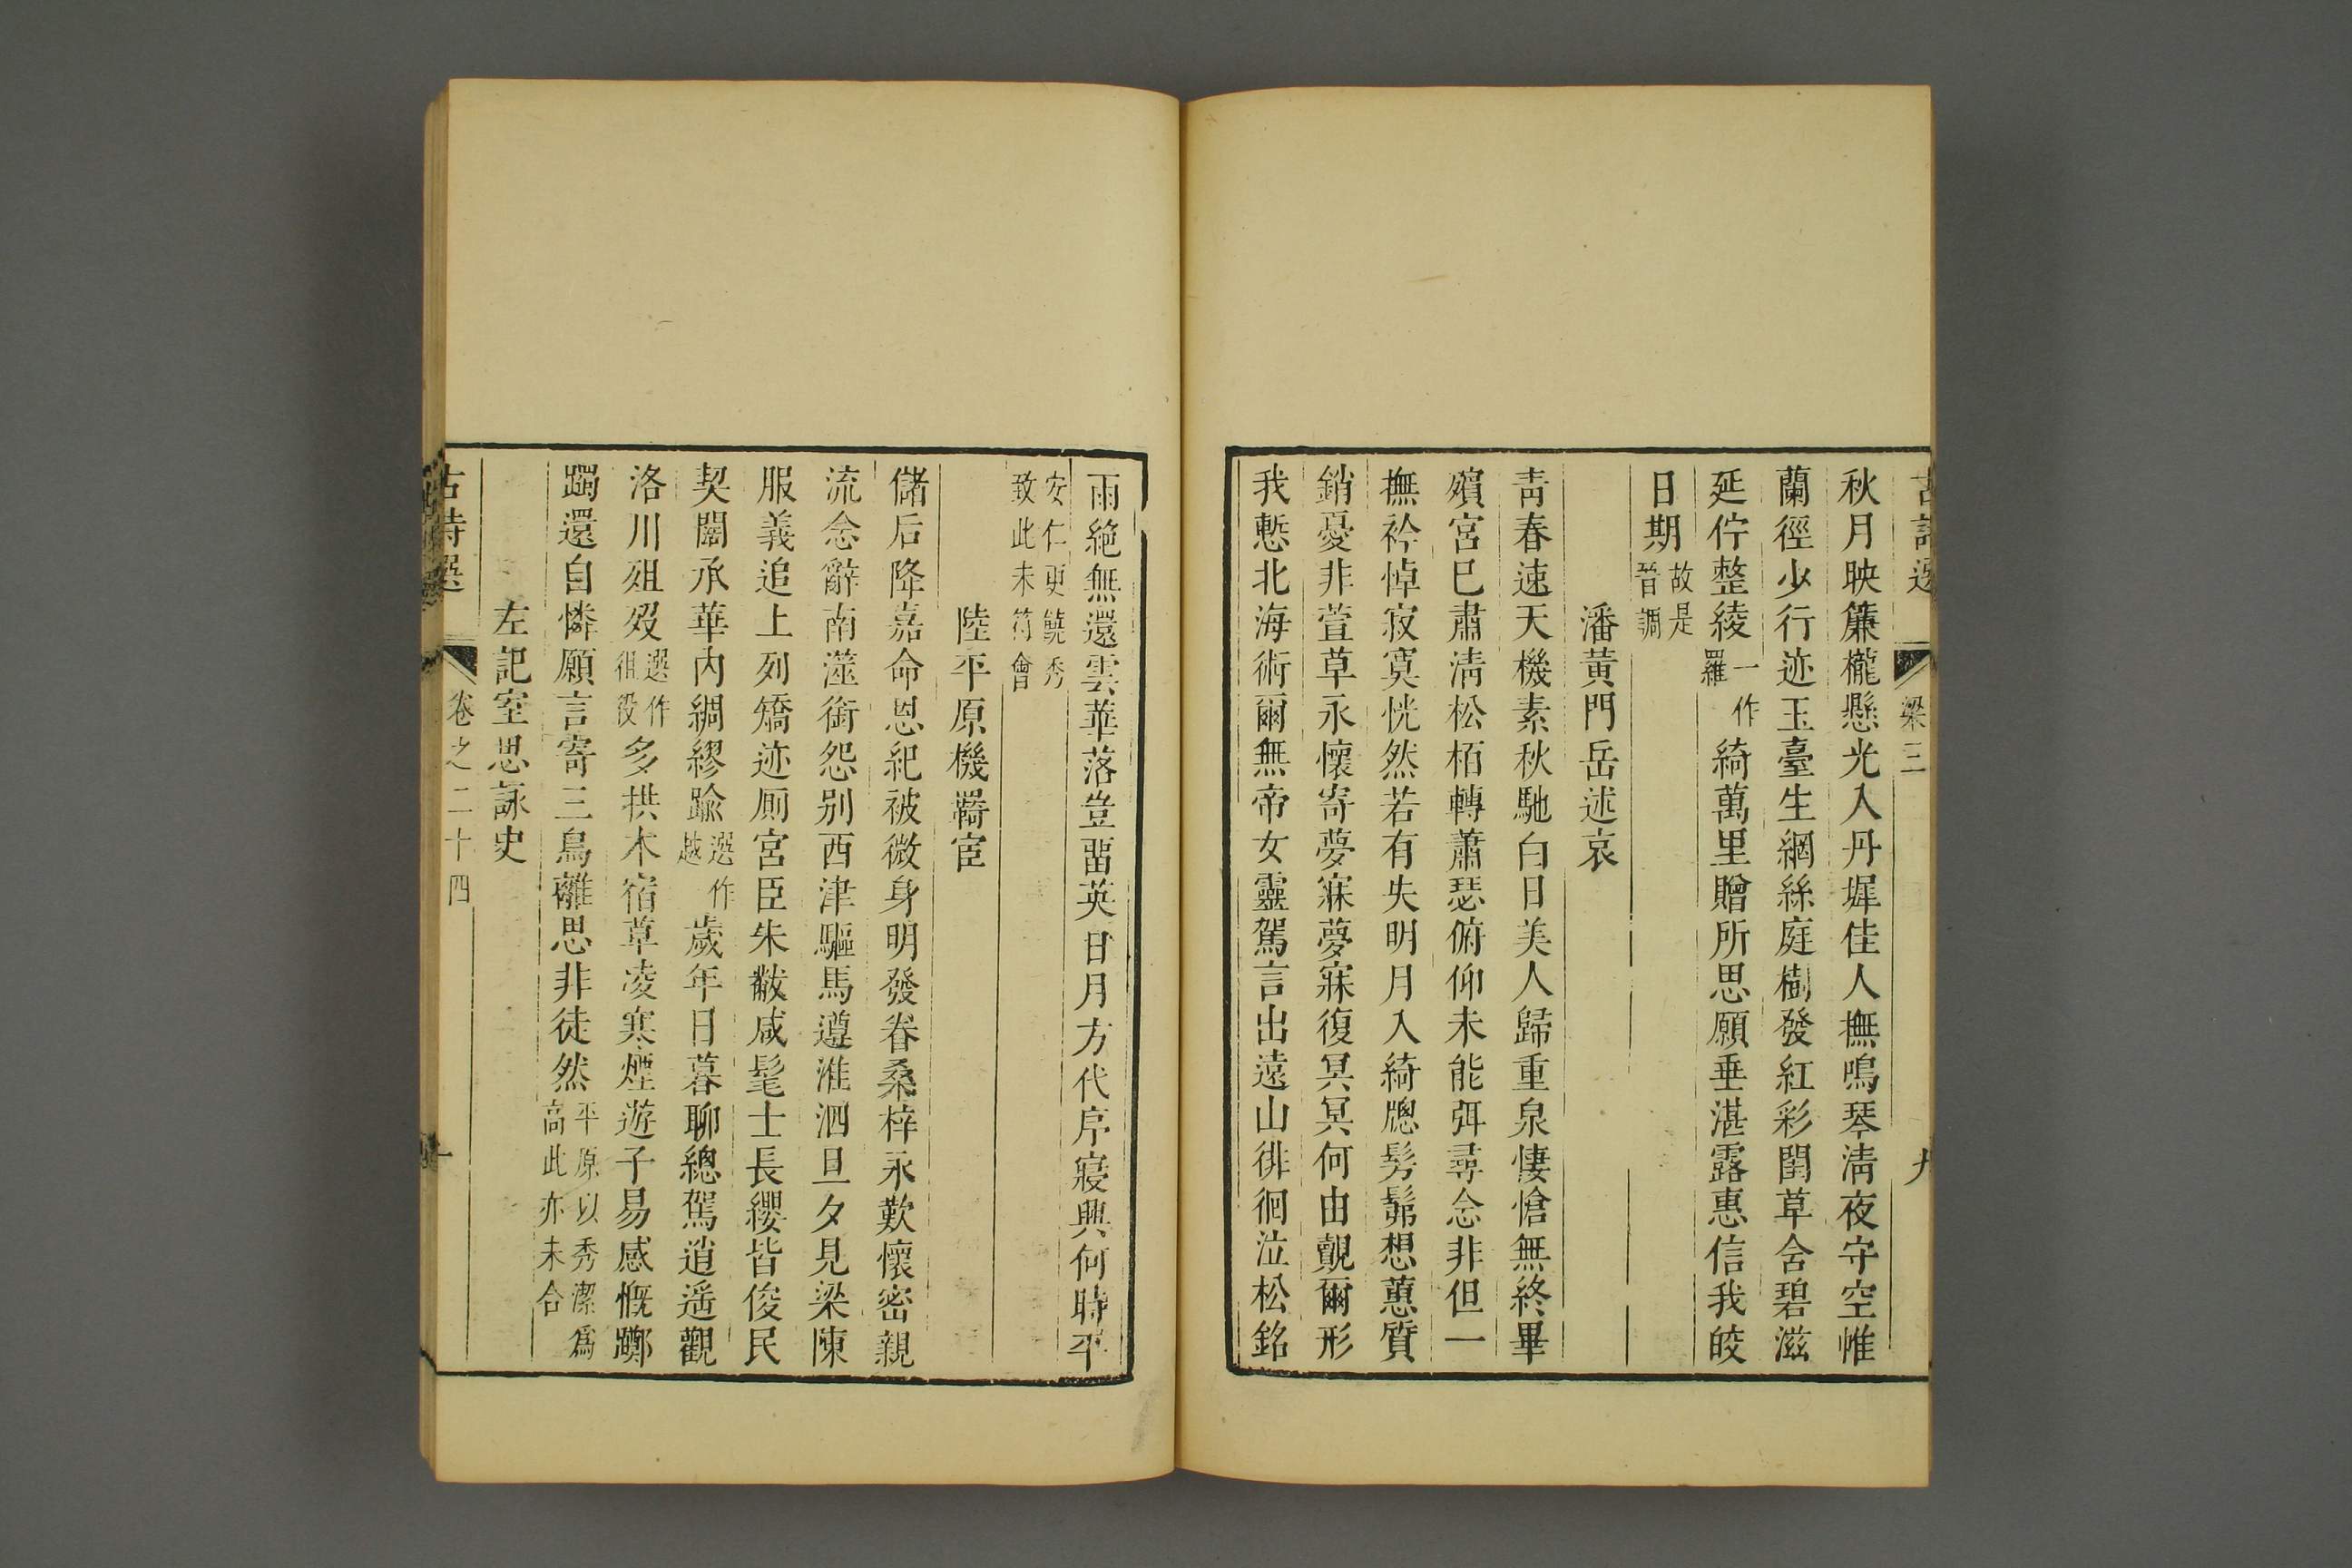 古詩選 梁三 九
秋月映簾櫳懸光入丹墀佳人撫鳴琴清夜守空帷
蘭徑少行迹玉臺生網絲庭樹發紅彩閨草含碧滋
延佇整綾一作羅綺萬里贈所思願垂湛露惠信我皎
日期故是晉調
潘黃門岳述哀
青春速天機素秋馳白日美人歸重泉悽愴無終畢
殯宮已肅清松栢轉蕭瑟俯仰未能弭尋念非但一
撫衿悼寂寞怳然若有失明月入綺牕髣髴想蕙質
銷憂非萱草永懷寄夢寐夢寐復冥冥何由覿爾形
我慙北海術爾無帝女靈駕言出遠山徘徊泣松銘
雨絕無還雲華落豈畱英日月方代序寢興何時平
安仁更饒秀致此未符會
陸平原機羇宦
儲后降嘉命恩紀被微身明發眷桑梓永歎懷密親
流念辭南澨銜怨别西津驅馬遵淮泗旦夕見梁陳
服義追上列矯迹厠宮臣朱黻咸髦士長纓皆俊民
契闊承華內綢繆踰選作越歲年日暮聊總駕逍遥觀
洛川殂歿選作徂役多拱木宿草凌寒煙遊子易感慨躑
躅還自憐願言寄三鳥離思非徒然平原以秀潔爲高此亦未合
左記室思詠史
古詩選 卷之二十四